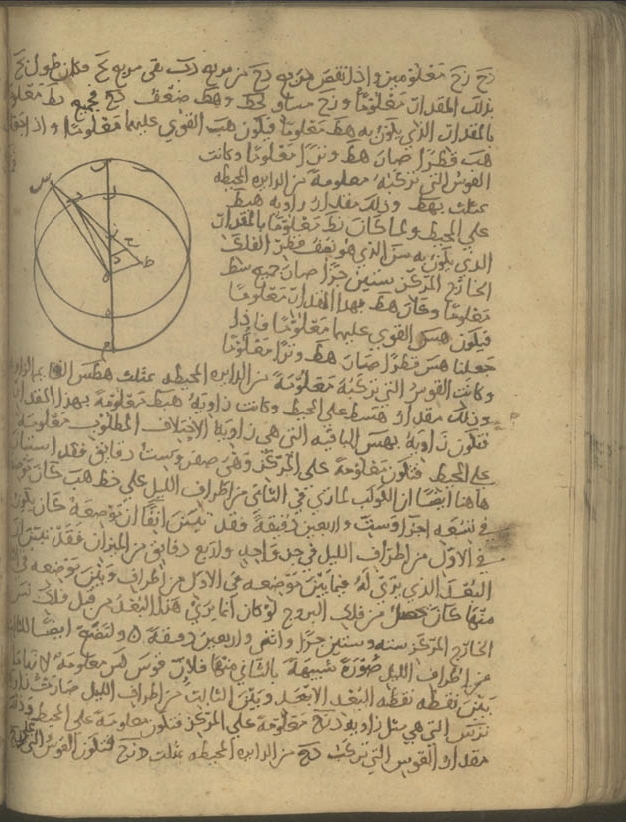 نح زح معلومين واذا نقص مربع دح من مربع دب بقى مربع بح فكان طول بح
بذلك المقدار معلومًا ونح مساو لحط وهط ضعف دح فجميع بط معلوم
بالمقدار الذي يكون به هط معلوما فيكون هب القوي عليهما معلوما واذا
هب قطرا صار هط وترًا معلومًا وكانت
القوس التي تركبه معلومة من الدايره المحيطه
بمثلث بهط وذلك مقدار زاويه هبط
على المحيط ولما كان نط معلومًا بالمقدار
الذي يكون به سز الذي هو نصف قطر الفلك
الخارج المركز ستين جزًا صار جميع سط
معلومًا وكان هط بهذا المقدار معلومًا
فيكون هس القوي عليهما معلومًا فاذا
جعلنا هس قطرًا صار هط وترًا معلومًا
وكانت القوس التي تركبه معلومة من الدايره المحيطه بمثلث هطس
وذلك مقدار هسط على المحيط وكانت زاويه هبط معلومة بهذا المقدار
فتكون زاويه بهس الباقيه التي هي زاوية الاختلاف المطلوب معلومة
على المحيط فتكون معلومة على المركز وهي صفر وست دقايق فقد استبان
هاهنا ايضًا ان الكوكب لما ري في الثاني من اطراف الليل على خط هب كان
في تسعه اجزا وست واربعين دقيقة فقد تبين انفًا ان موضعه كان يكون
في الاول من اطراف الليل في جز واحد واربع دقايق من الميزان فقد تبين ان
البعد الذي يرى له فيما بين موضعه في الاول من اطراف وبين موضعه في
منها كان يحصل من فلك البروج لو كان انما يري هذا البعد من قبل فلك
الخارج المركز سته وستين جزًا واثنى واربعين دقيقة ولتضع ايضًا للثالث
من اطراف الليل صورة شبيهة بالثاني منها فلان قوس لس معلومة لانها
بين نقطه نقطه البعد الابعد وبين الثالث من اطراف الليل صارت زاويه
نزس التي هي مثل زاويه دزح معلومة على المركز فتكون معلومة على المحيط وذلك
مقدار القوس التي تركب دح من الدايره المحيطه بمثلث دزح فتكون القوس التي